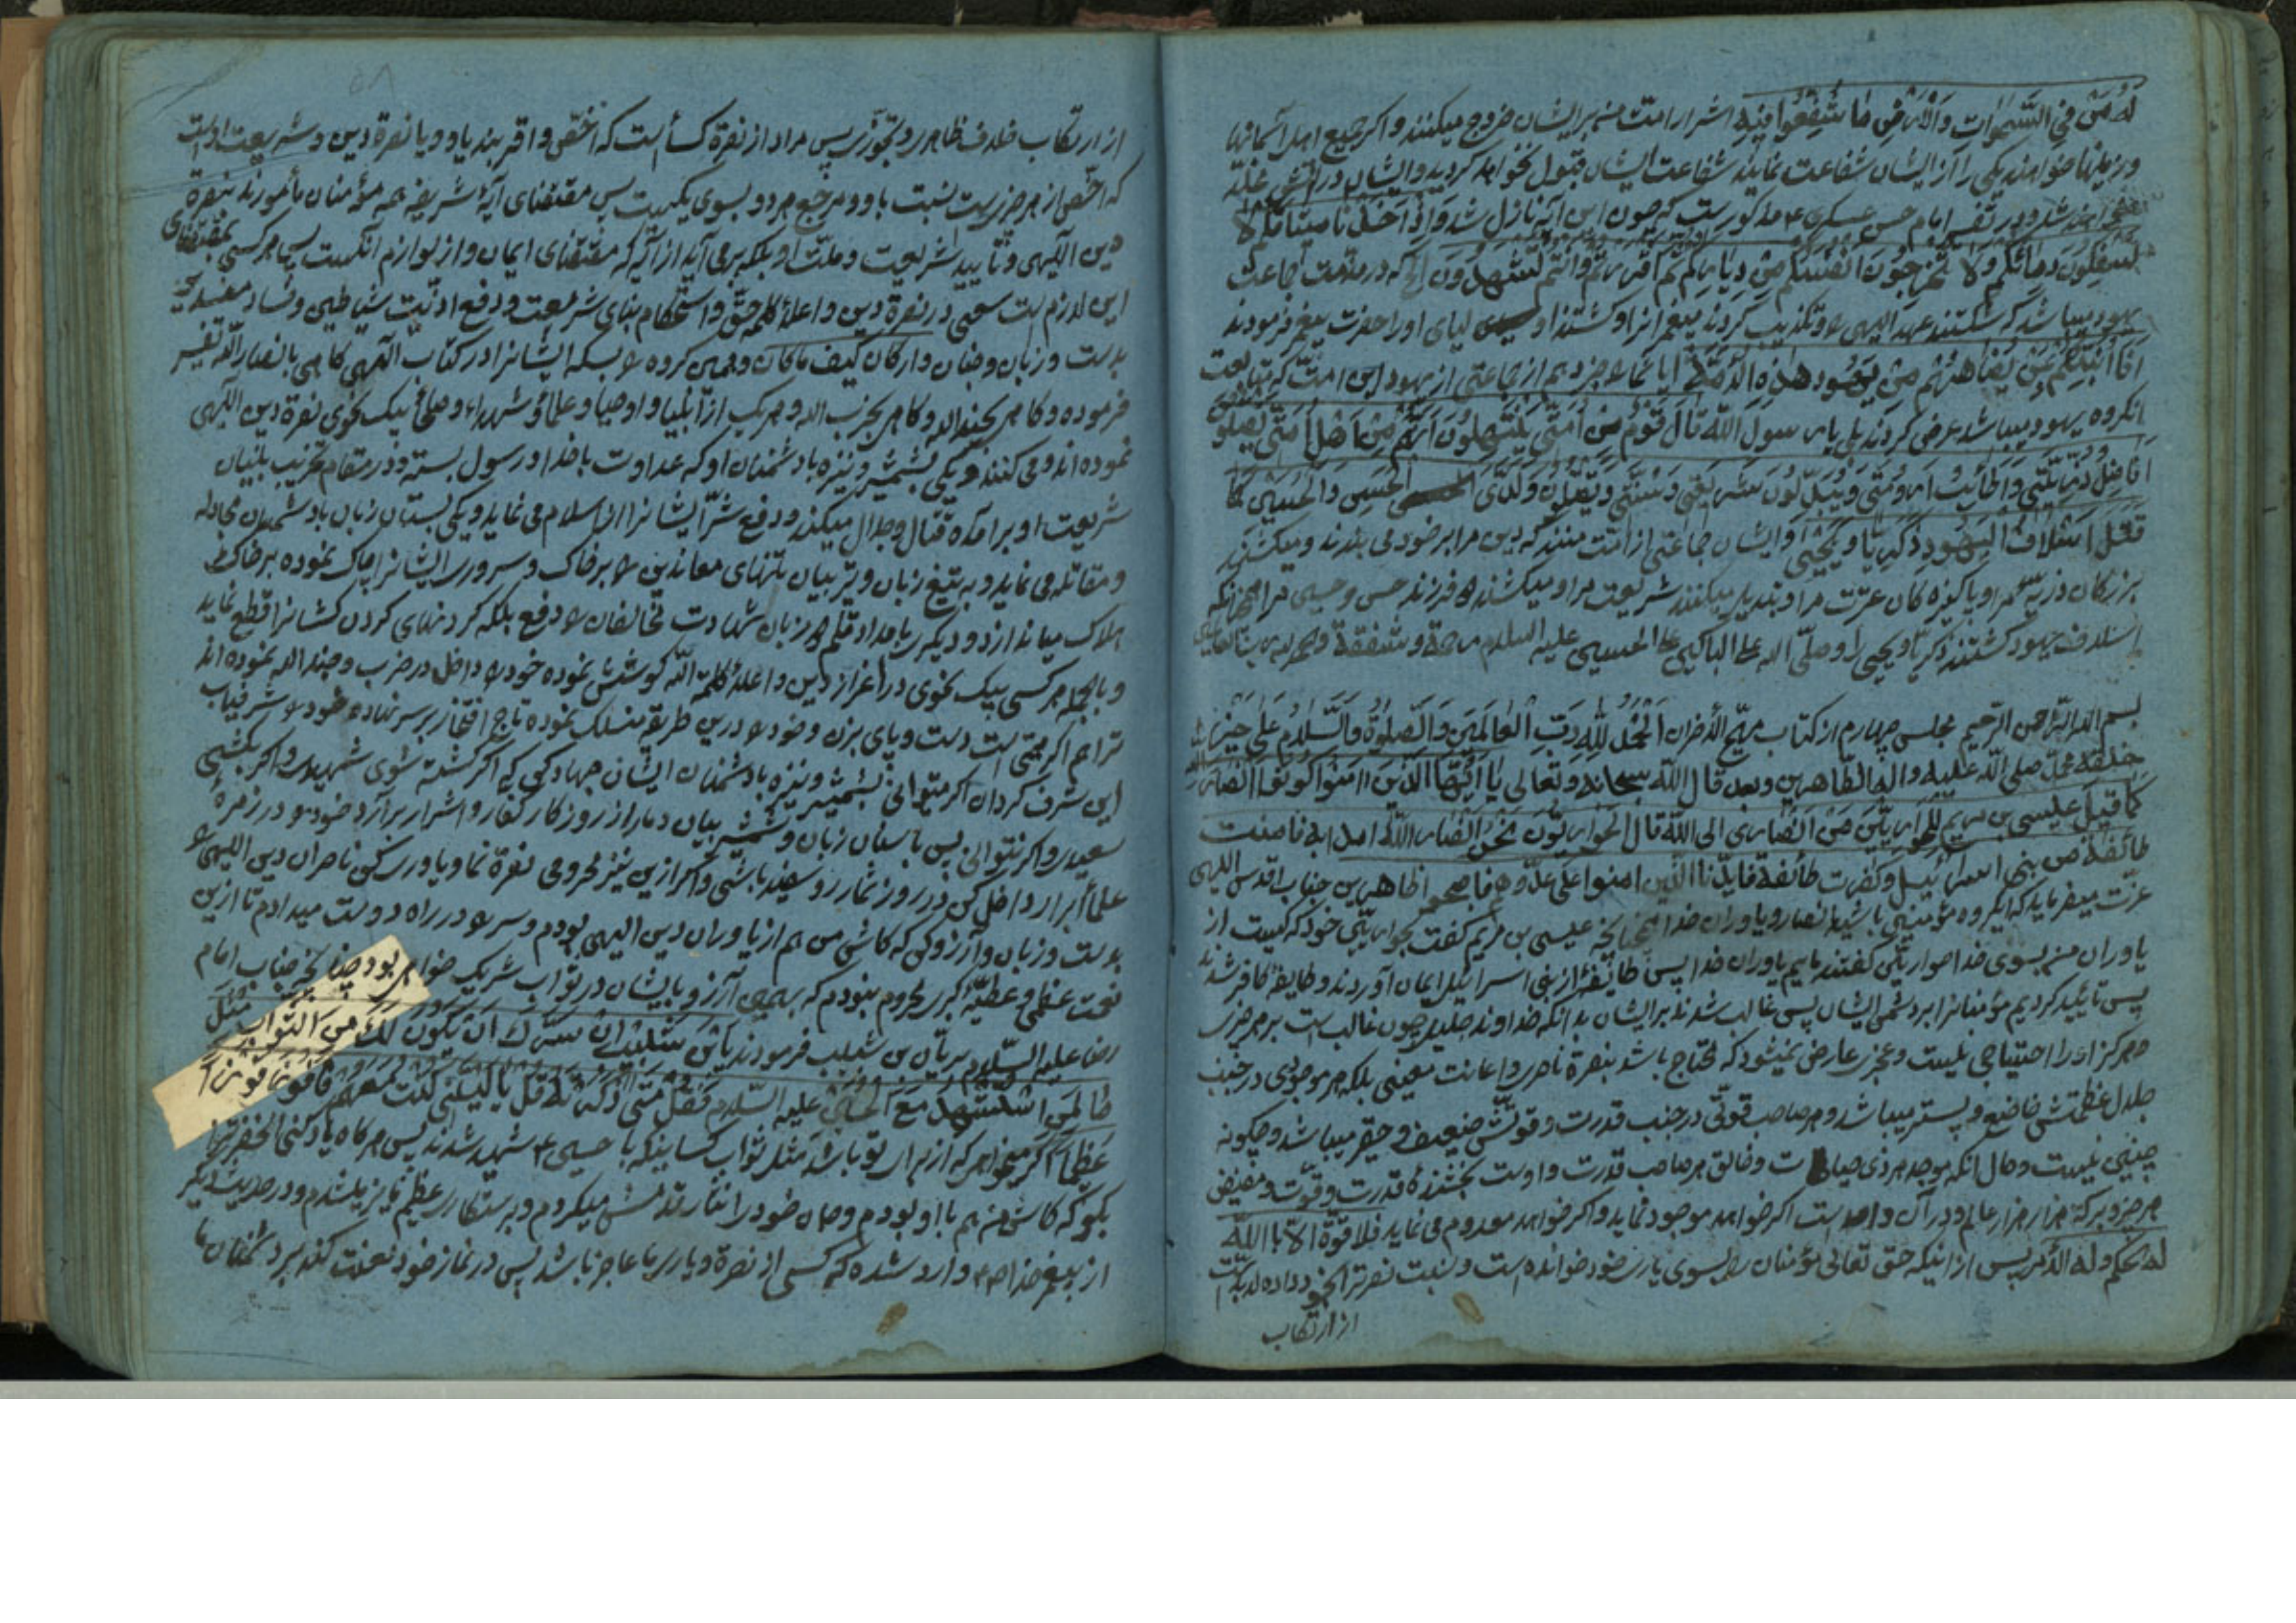 له من في السموات والارض ما شفعوا فیه اشرار امت من برایشان خروج میکنند و اکر جمیع اهل آسمانها
و زمینها خواهند یکی را از ایشان شفاعت نمایند شفاعت ایشان قبول نخواهد کردید و ایشان در آتش مخلد
خواهند شد و در تفسیر امام حسن عسکری ع مذکورست که چون این آیه نازل شد و اذ اخذنا میثاقکم لا
تسفکون دمائکم ولا تخرجون انفسکم من دیارکم ثم اقررتم وانتم تشهدون الخ که در مذمت جماعت
یهود میباشد که شکستند عهد الهی را و تکذیب کردند پیغمبرانرا و کشتند اولیای او را حضرت پیغمبر فرمودند
افلا انبئکم بمن یضاهئهم من یهود هذه الامة ایا شما را خبر دهم از جماعتی از یهود این امت که شباهت
انکروه یهود میباشد عرض کردند بلی یا رسول الله قال قوم من امتی ینتحلون انهم من اهل ملتی یقتلون
افاضل ذریتی واطائب ارومتی ویبدلون شریعتی وسنتی ویقتلون ولدی الحسن والحسین کما
قتل اسلاف الیهود ذکریا ویحیی و ایشان جماعتی از امت منند که دین مرا بر خود می بندند و میکشند
بزرکان ذریه مرا و پاکیزه کان عترت مرا و تبدیل میکنند شریعت مرا و میکشند دو فرزند حسن و حسین مرا همچنانکه
اسلاف یهود کشتند ذکریا و یحیی را وصلی الله علی الباکین علی الحسین علیه السلام رحمة وشفقة والحمد لله رب العالمین
بسم الله الرحمن الرحیم مجلس چهارم از کتاب مهیج الأحزان الحمد لله رب العالمین والصلوة والسلام علی خیر
خلقه محمد صلی الله علیه واله الطاهرین وبعد قال الله سبحانه وتعالی یا ایها الذین امنوا کونوا انصار الله
کما قال عیسی بن مریم للحواریین من انصاری الی الله قال الحواریون نحن انصار الله فامنت
طائفة من بنی اسرائیل وکفرت طائفة فایدنا الذین امنوا علی عدوهم فاصبحوا ظاهرین جناب اقدس الهی
عزت میفرماید که ایکروه مؤمنین باشید انصار و یاوران خدا همچنانکه عیسی بن مریم کفت بحواریین خود که کیست از
یاوران من بسوی خدا حواریین کفتند مائیم یاوران خدا پس طائفه از بنی اسرائیل ایمان آوردند و طایفه کافر شدند
پس تأیید کردیم مؤمنانرا بر دشمن ایشان پس غالب شدند بر ایشان بدانکه خداوند جلیل چون غالب است بر هر چیزی
هرکز او را احتیاجی نیست و عجزی عارض نمیشود که محتاج باشد بنصرة ناصری و اعانت معینی بلکه هر موجودی در جنب
جلال عظمتش خاضع و پست میباشد و هر صاحب قوتی در جنب قدرت و قوتش ضعیف و حقیر میباشد و چکونه
چنین نیست و حال انکه موجد هر ذی حیات و خالق هر صاحب قدرت و اوست بخشنده قدرت و قوت و مفیض
هر خیر و برکة هزار هزار عالم در آن واحد است اکر خواهد موجود نماید و اکر خواهد معدوم می نماید فلا قوة الا بالله
له الحکم وله الأمر پس از اینکه حق تعالی مؤمنان را بسوی یاری خود خوانده است و نسبت نصرة را بخود داده لابد است
از ارتکاب
از ارتکاب خلاف ظاهر و تجوز پس مراد از نصرة کسأ است که اخص و اقربند باو و یا نصرة دین و شریعت اوست
که اخص از هر چیزیست نسبت باو و مرجع هر دو بسوی یکیست پس مقتضای آیۀ شریفه همه مؤمنان مأمورند بنصرة
دین الهی و تأیید شریعت و ملت او بلکه برمی آید از آیه که مقتضای ایمان و از لوازم انکیست پس هرکسی بمقتضای
این لازم است سعی در نصرة دین و اعلاء کلمۀ حق و استحکام بنای شریعت و دفع اذیت شیاطین و فساد مفسدین
بدست و زبان و جنان و ارکان کیف ما کان و همین کروه را بسکه ایشانرا در کتاب الهی کاهی بانصار الله تفسیر
فرموده و کاهی بجند الله و کاهی بحزب الله و هریک از انبیا و اوصیا و علما و شهداء و صلحا بیک نحوی نصرة دین الهی
نموده اند و می کنند یکی بشمشیر و نیزه با دشمنان او که عداوت با خدا و رسول بسته و در مقام تخریب بنیان
شریعت او برآمده قتال و جدال میکند و دفع شر ایشانرا از اسلام می نماید و یکی بسنان زبان با دشمنان مجادله
و مقاتله می نماید و به تیغ زبان و تیر بیان تنهای معاندین را بر خاک و سرور ایشانرا پاک نموده بر خاک
هلاک میاندازد و دیکری با مداد قلم و زبان شهادت مخالفان را دفع بلکه کردنهای کردن کشانرا قطع نماید
و بالجمله هرکسی بیک نحوی در اعزاز دین و اعلاء کلمة الله کوشش نموده خود را داخل در حزب و جند الله نموده اند
ترا هم اکر همتی است دست و پای بزن و خود را در این طریقه منسلک نموده تاج افتخار بر سر نهاده خود را شرفیاب
این شرف کردان اکر میتوانی بشمشیر و نیزه با دشمنان ایشان جهاد کن که اکر کشته شوی شهیدی و اکر بکشی
سعیدی و اکر نتوانی پس با سنان زبان و شمشیر بیان دمار از روزکار کفار و اشرار برآر و خود را در زمرۀ
علمأ ابرار داخل کن در روز شمار رو سفید باشی و اکر از این نیز محرومی نصرة نما و یاوری کن ناصران دین الهی را
بدست و زبان و آرزو کن که کاشی من هم از یاوران دین الهی بودم و سر را در راه دوست میدادم تا از این
نعمت عظمی و عطیه کبری محروم نبودم که بهمین آرزو با ایشان در ثواب شریک خواهی بود چنانچه جناب امام
رضا علیه السلام بریان بن شبیب فرمودند یابن شبیب ان سرک ان تکون لک من الثواب مثل
ما لمن استشهد مع الحسین علیه السلام فقل متی ذکرته قل یا لیتنی کنت معهم فافوز فوزا
عظیما اکر میخواهی که از برای تو باشد مثل ثواب کسانیکه با حسین ع شهید شدند پس هرکاه یاد کنی انحضرترا
بکو که کاش من هم با او بودم و جان خود را نثار قدمش میکردم و برستکاری عظیم فایز میشدم و در حدیث دیکر
از پیغمبر خدا ص وارد شده که کسی از نصرة و یاری ما عاجز باشد پس در نماز خود لعنت کند بر دشمنان ما